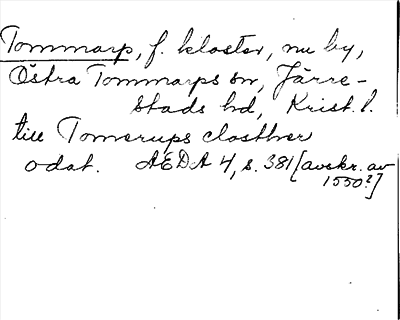 Tommarp, f. kloster, nu by,
Östra Tommarps sn, Järre-
stads hd, Krist. l.
till Tomerups closther
odat. AEDA 4, s. 381 [avskr. av
1550?]